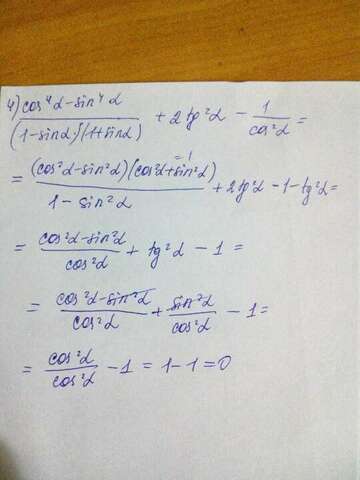 4) (cos⁴α - sin⁴α) / ((1 - sinα)(1 + sinα)) + 2tg²α - 1/cos²α =
= (cos²α - sin²α)(cos²α + sin²α)⁼¹ / (1 - sin²α) + 2tgα - 1 - tg²α =
= (cos²α - sin²α) / cos²α + tg²α - 1 =
= (cos²α - sin²α) / cos²α + sin²α / cos²α - 1 =
= cos²α / cos²α - 1 = 1 - 1 = 0